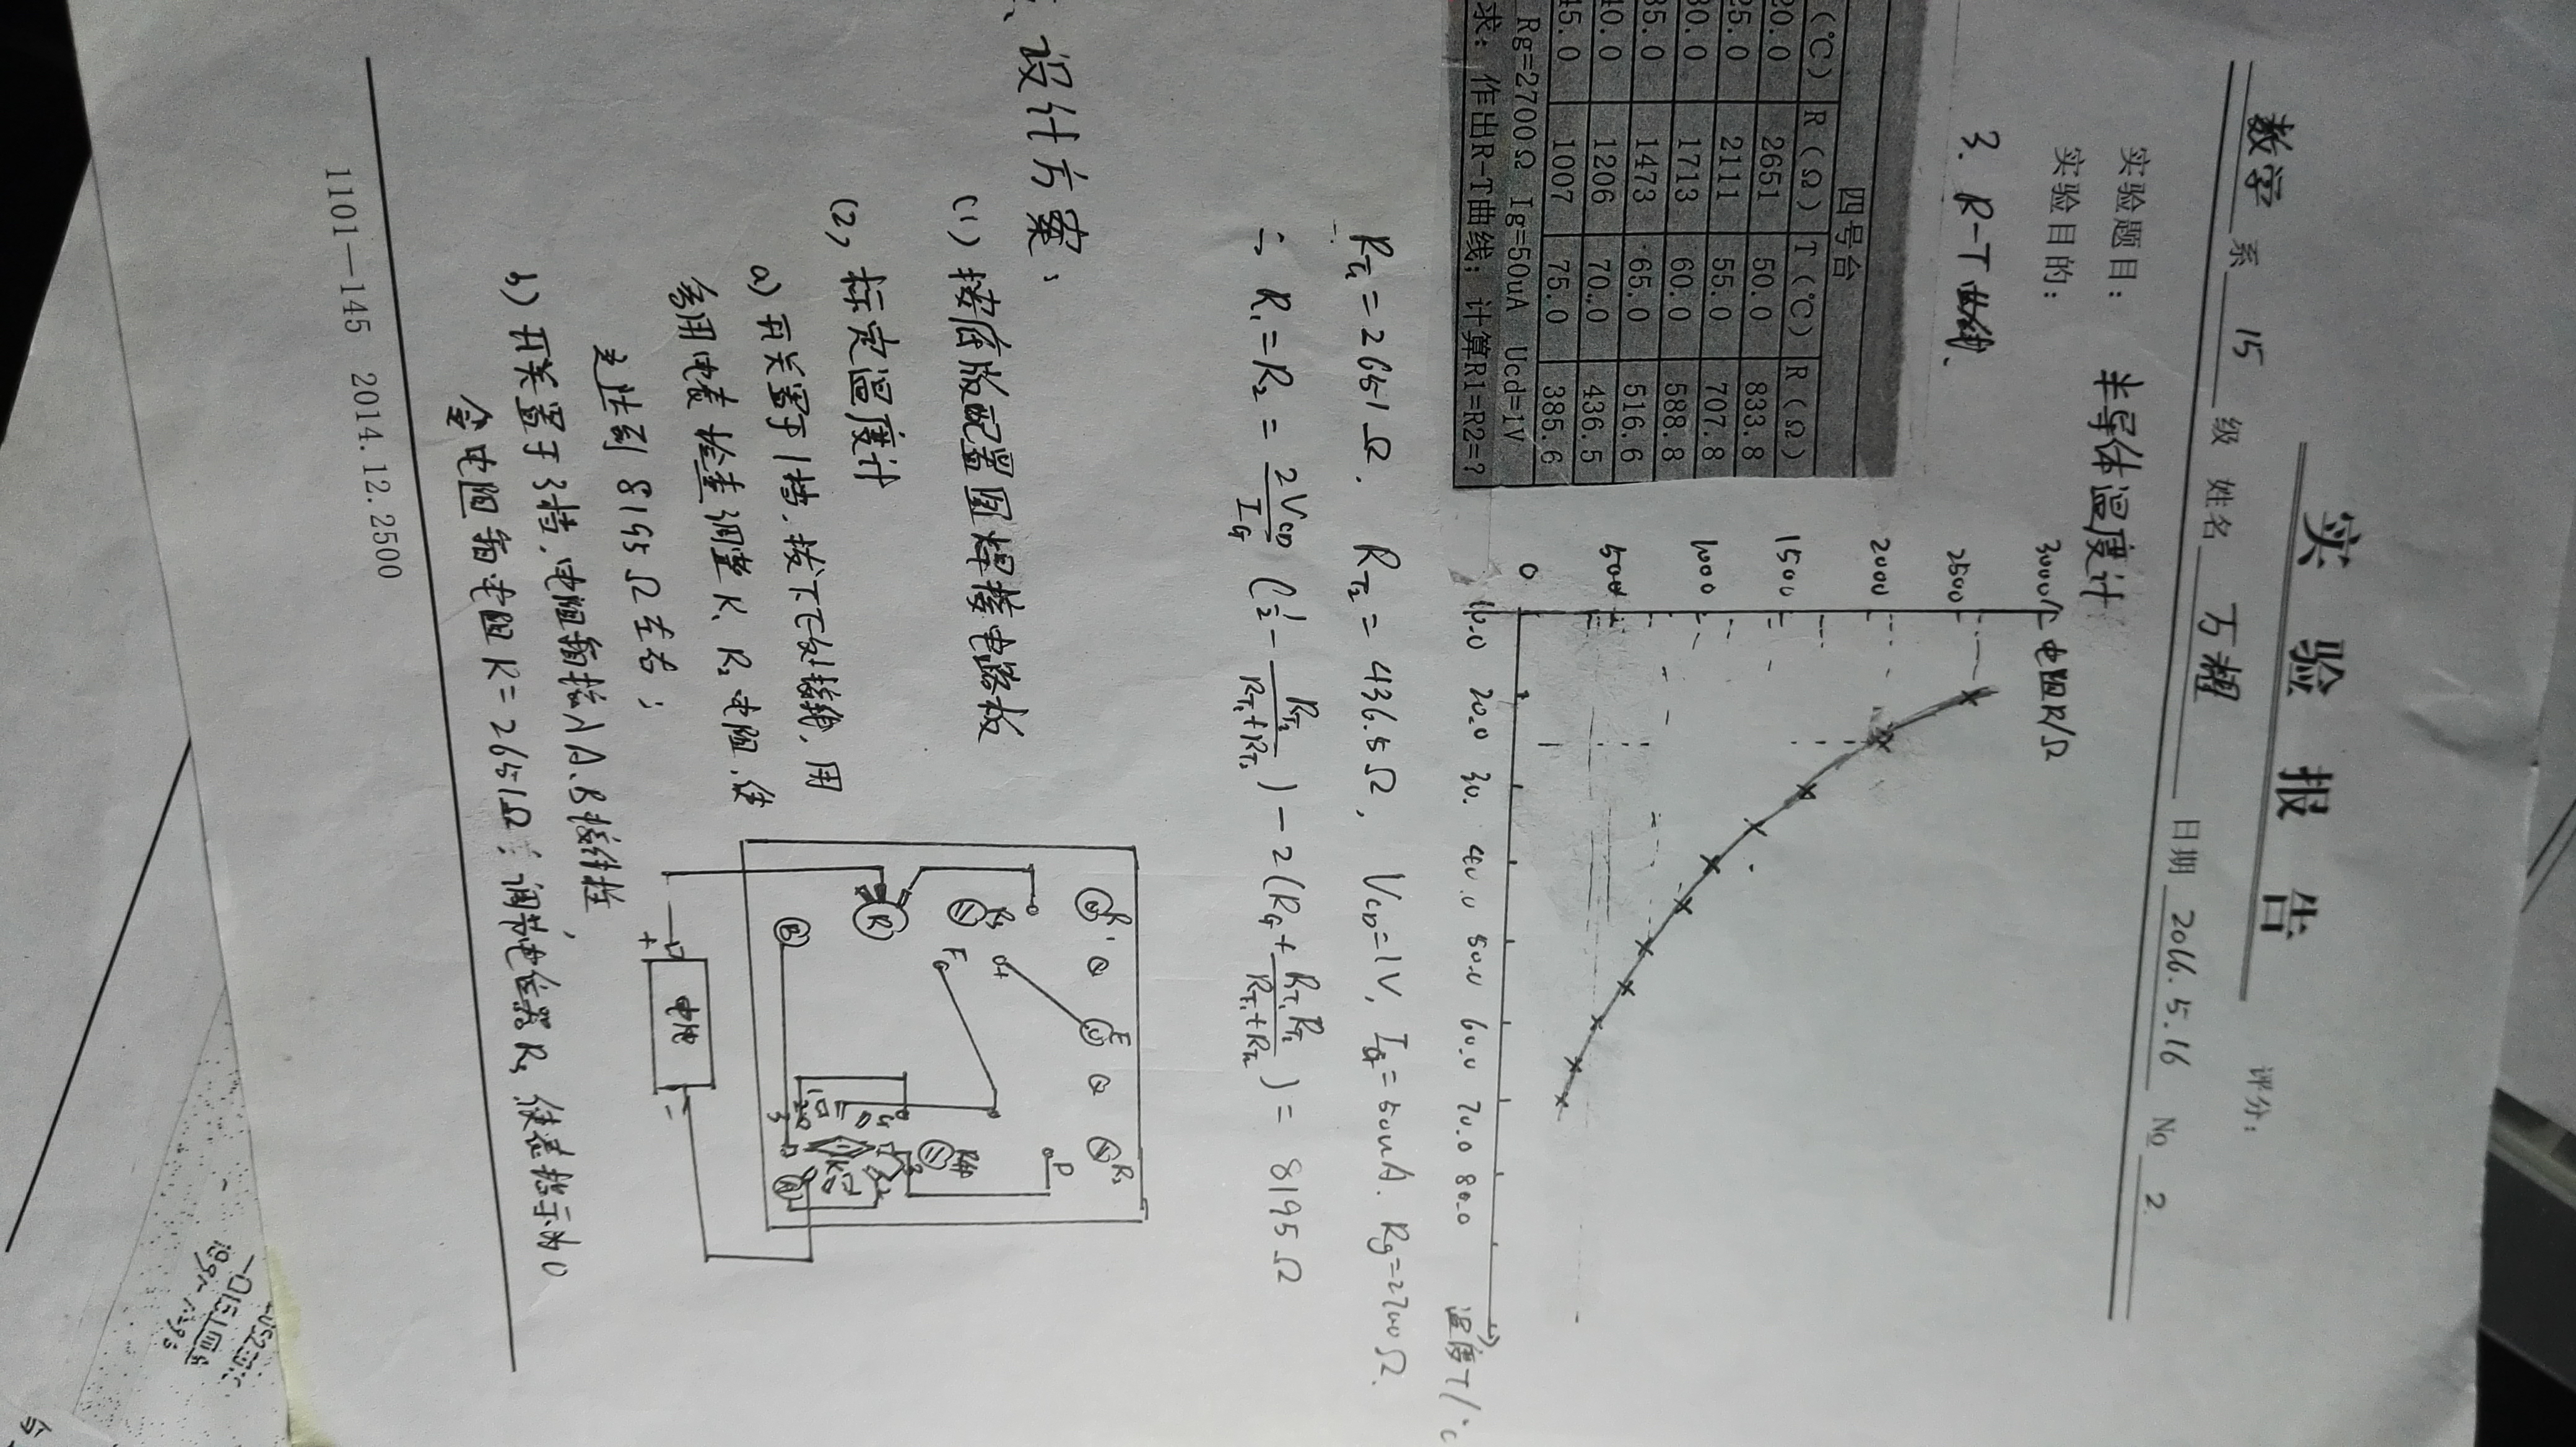 实验报告
评分：
数学 系 15 级 姓名 方耀 日期 2016.5.16 No 2
实验题目： 半导体温度计
实验目的：
3. R-T曲线.
四号台
(℃) R(Ω) T(℃) R(Ω)
20.0 2651 50.0 833.8
25.0 2111 55.0 707.8
30.0 1713 60.0 588.8
35.0 1473 65.0 516.6
40.0 1206 70.0 436.5
45.0 1007 75.0 385.6
Rg=2700Ω Ig=50uA Ucd=1V
求：作出R-T曲线；计算R1=R2=?
电阻R/Ω
3000
2500
2000
1500
1000
500
0
10.0 20.0 30. 40.0 50.0 60.0 70.0 80.0 温度T/℃
RT₁=2651Ω. RT₂=436.5Ω, VCD=1V, IG=50uA. Rg=2700Ω.
∴ R₁=R₂= 2VCD/IG (1/2 - RT₂/(RT₁+RT₂)) - 2(RG + RT₁RT₂/(RT₁+RT₂)) = 8195Ω
、设计方案、
(1) 按底版配置图焊接电路板
(2) 标定温度计
a) 开关置于1档、拨下E处接线、用
多用电表检查调整R₁、R₂电阻、使
达到8195Ω左右；
b) 开关置于3档、电阻箱接入A.B接线柱、
令电阻箱电阻R=2651Ω；调节电位器R，使电表指示为0
R₁
E
R₂
R₃
D
F
R
B
A
R₄
+ 电池 -
1101—145 2014.12.2500